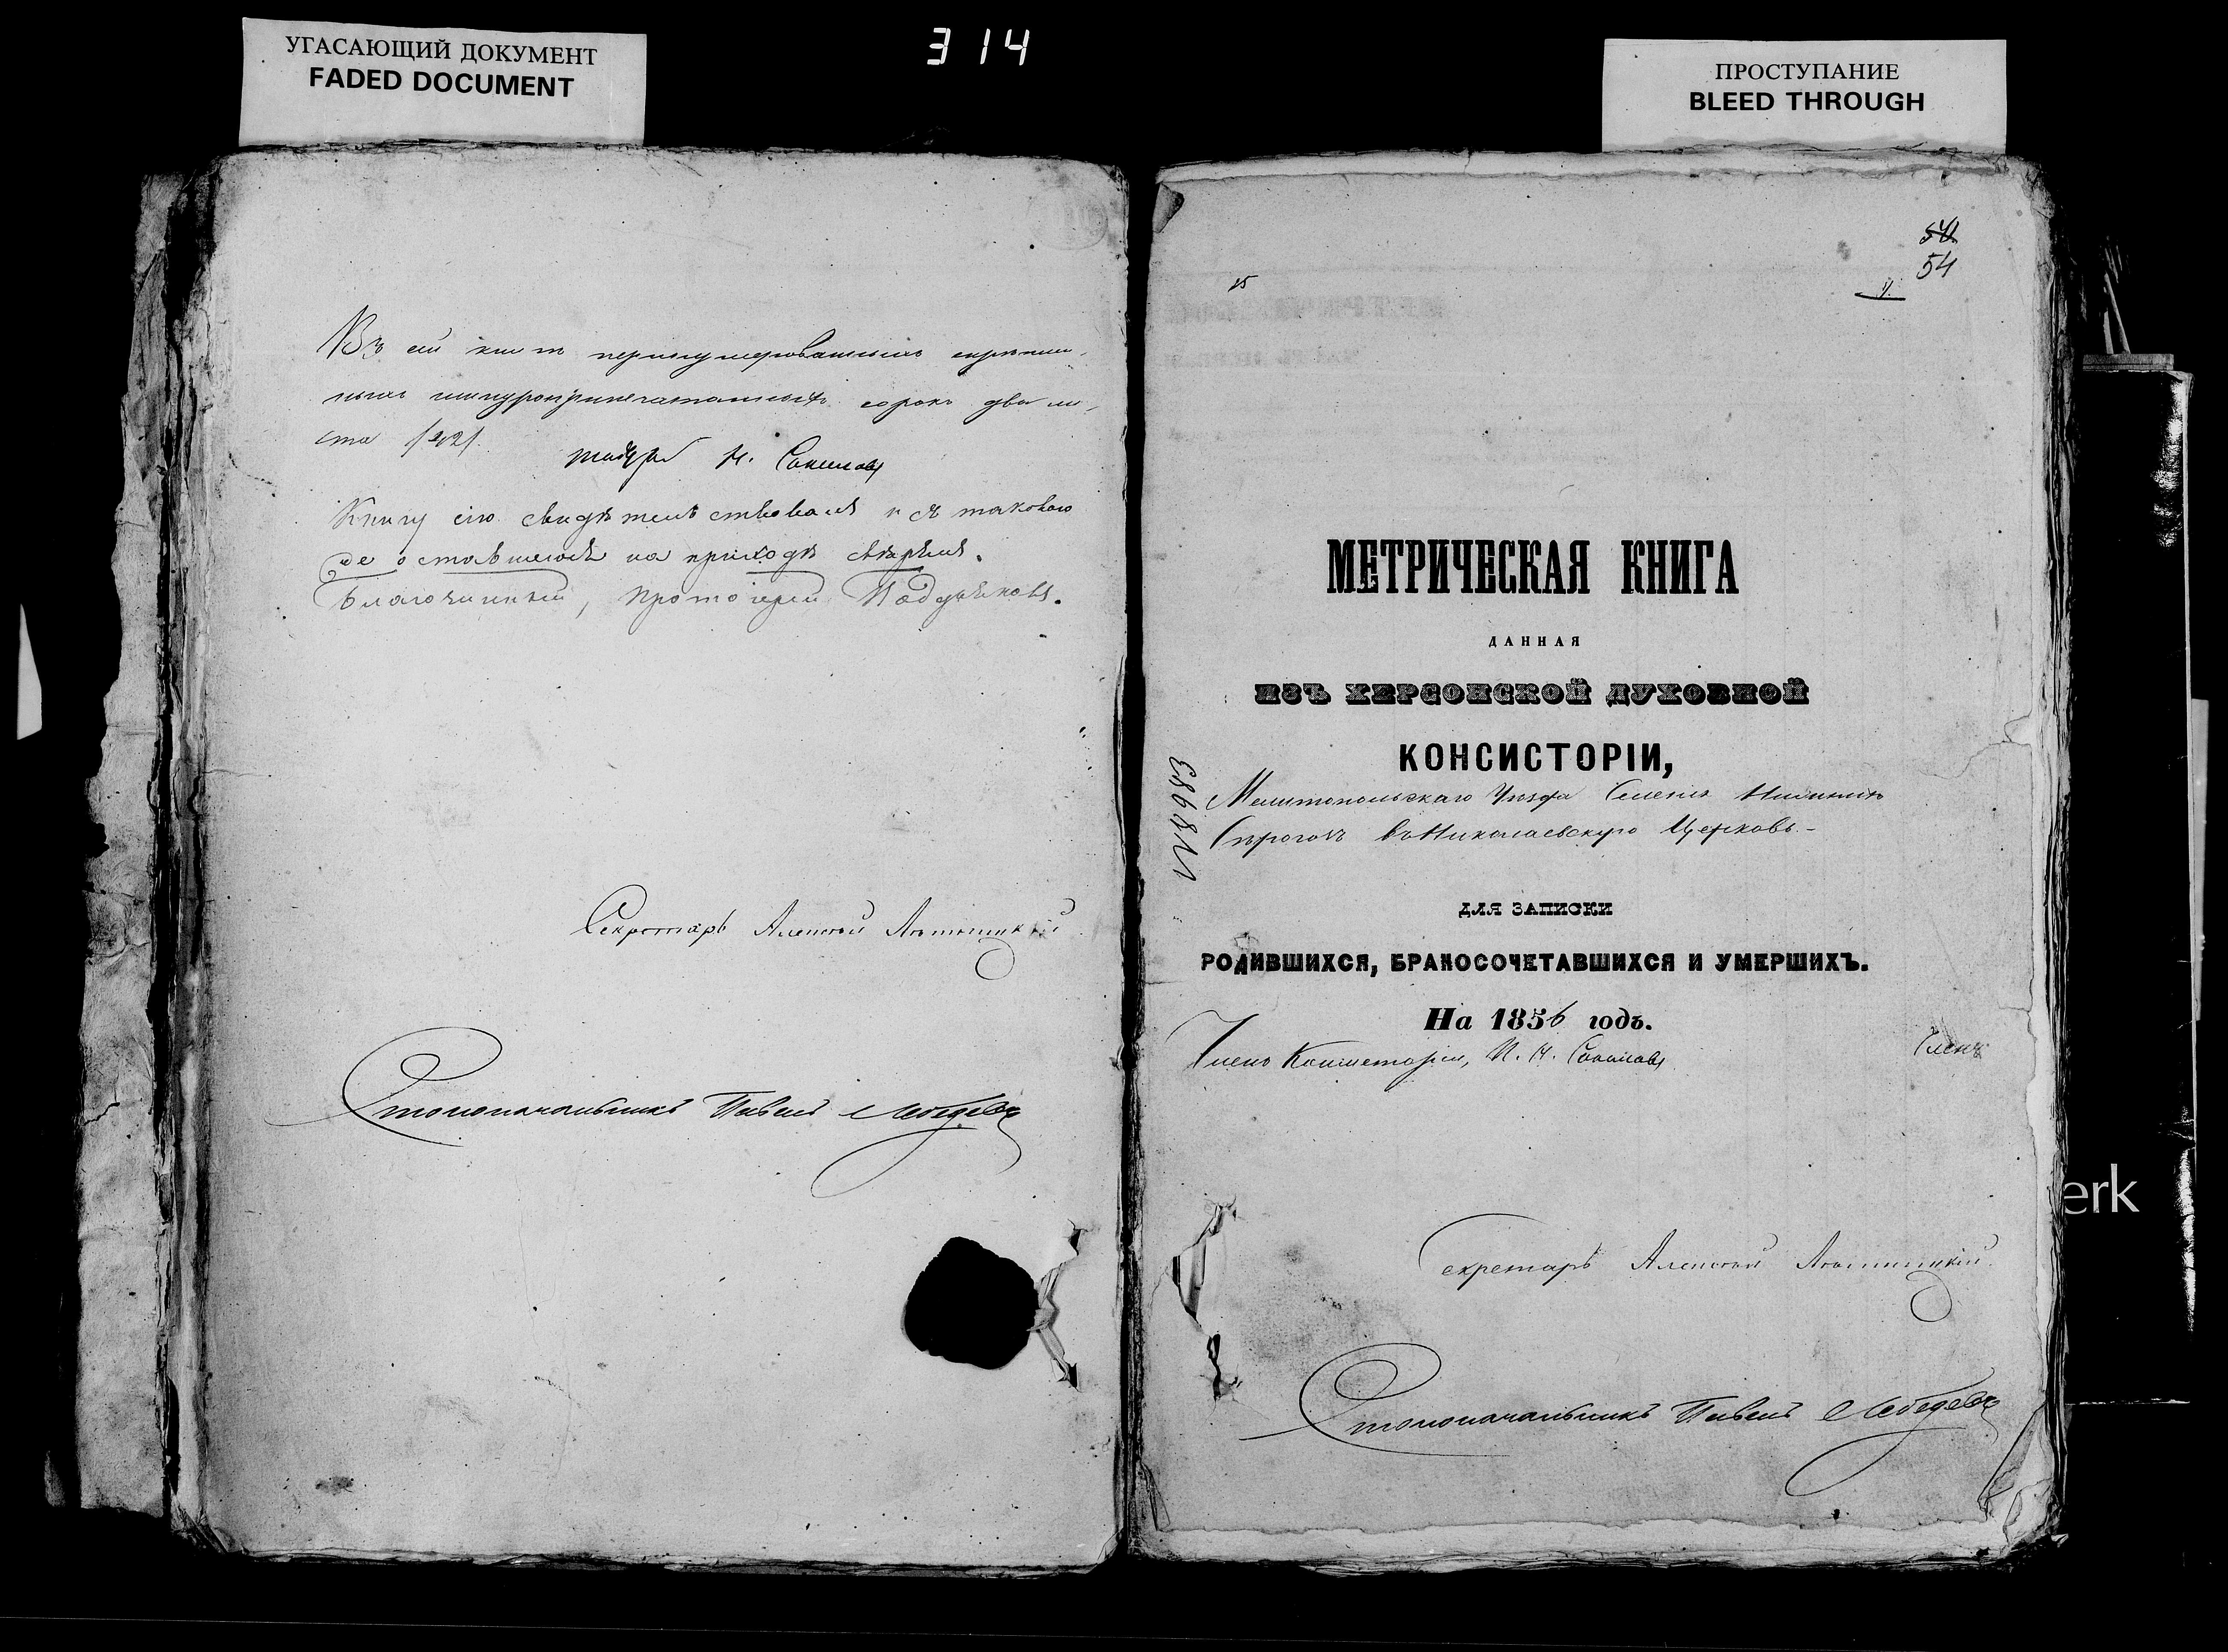 УГАСАЮЩИЙ ДОКУМЕНТ
FADED DOCUMENT
314
ПРОСТУПАНИЕ
BLEED THROUGH
Въ сей книгѣ перенумерованныхъ скрѣплен-
ныхъ шнуроприпечатанныхъ сорокъ два ли-
ста /42/.
Н. Соколовъ
Книгу сію свидѣтельствовалъ и съ таковою
же оставшеюся на приходѣ свѣрялъ.
Благочинный, протоіерей
Секретарь Алексѣй
Столоначальникъ Павелъ Лебедевъ
54
54
15
МЕТРИЧЕСКАЯ КНИГА
ДАННАЯ
ИЗЪ ХЕРСОНСКОЙ ДУХОВНОЙ
КОНСИСТОРІИ,
Мелитопольскаго Уѣзда Селенія Нижнихъ
Сѣрогозъ въ Николаевскую Церковь.-
ДЛЯ ЗАПИСКИ
РОДИВШИХСЯ, БРАКОСОЧЕТАВШИХСЯ И УМЕРШИХЪ.
На 1856 годъ.
Членъ Консисторіи, П. Н. Соколовъ
Членъ
Секретарь Алексѣй
Столоначальникъ Павелъ Лебедевъ
erk